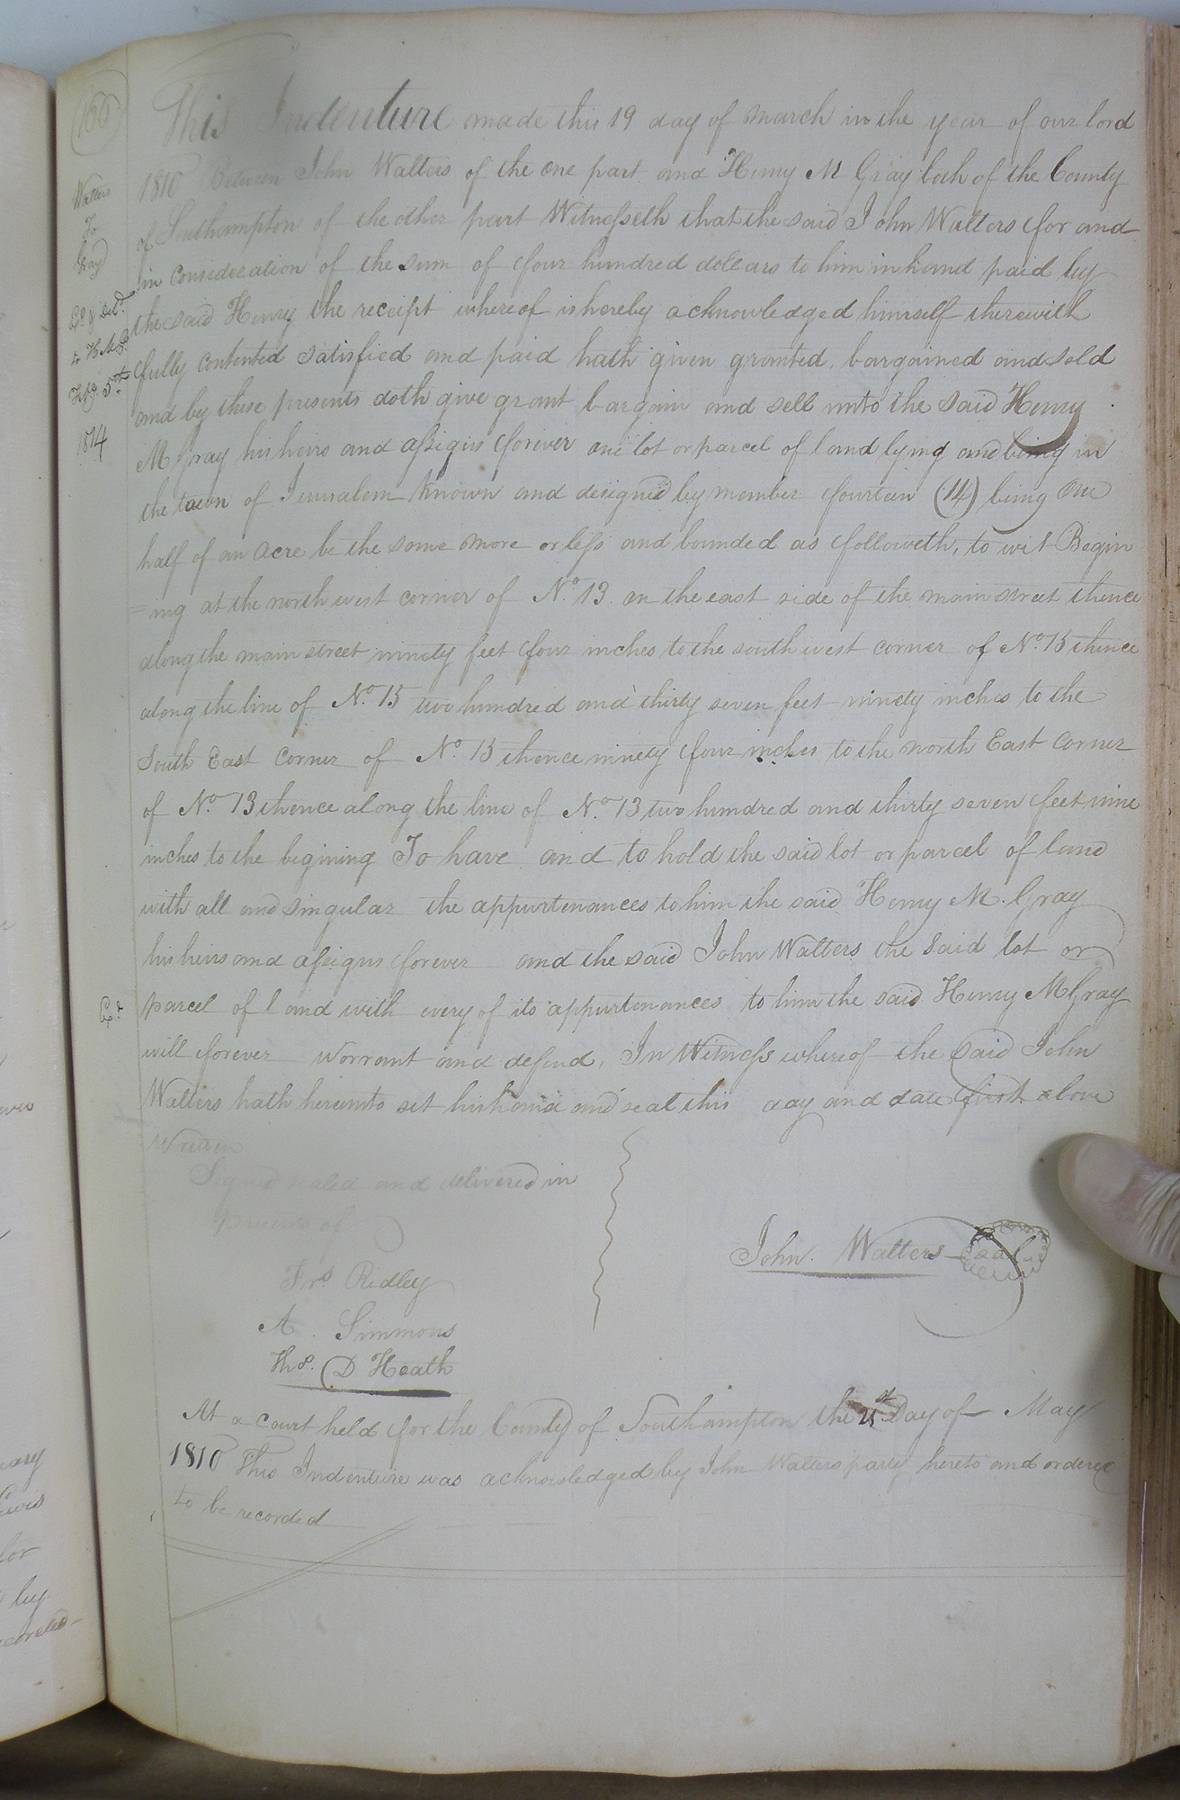 166
This Indenture made this 19 day of March in the year of our lord
1810 Between John Walters of the one part and Henry M Gray both of the County
of Southampton of the other part Witnesseth that the said John Walters for and
in consideration of the sum of four hundred dollars to him in hand paid by
the said Henry the receipt whereof is hereby acknowledged himself therewith
fully contented satisfied and paid hath given granted, bargained and sold
and by these presents doth give grant bargain and sell unto the said Henry
M Gray his heirs and assigns forever one lot or parcel of land lying and being in
the town of Jerusalem known and designed by member fourteen (14) being one
half of an acre be the same more or less and bounded as followeth, to wit Begin
=ing at the north west corner of No. 13 on the east side of the main street thence
along the main street ninety feet four inches to the south west corner of No. 15 thence
along the line of No. 15 two hundred and thirty seven feet ninety inches to the
South East corner of No. 15 thence ninety four inches to the north East corner
of No. 13 thence along the line of No. 13 two hundred and thirty seven feet nine
inches to the begining To have and to hold the said lot or parcel of land
with all and singular the appurtenances to him the said Henry M. Gray
his heirs and assigns forever and the said John Walters the said lot or
parcel of land with every of its appurtenances to him the said Henry M Gray
will forever warrant and defend, In Witness whereof the said John
Walters hath hereunto set his hand and seal this day and date first above
written
Signed sealed and delivered in
presence of
John Walters Seal
Jno. Ridley
A. Simmons
Ths. D Heath
At a court held for the County of Southampton the 21st Day of May
1810 This Indenture was acknowledged by John Walters party hereto and ordered
to be recorded
Walters
To
Gray
Feby 5th
1814